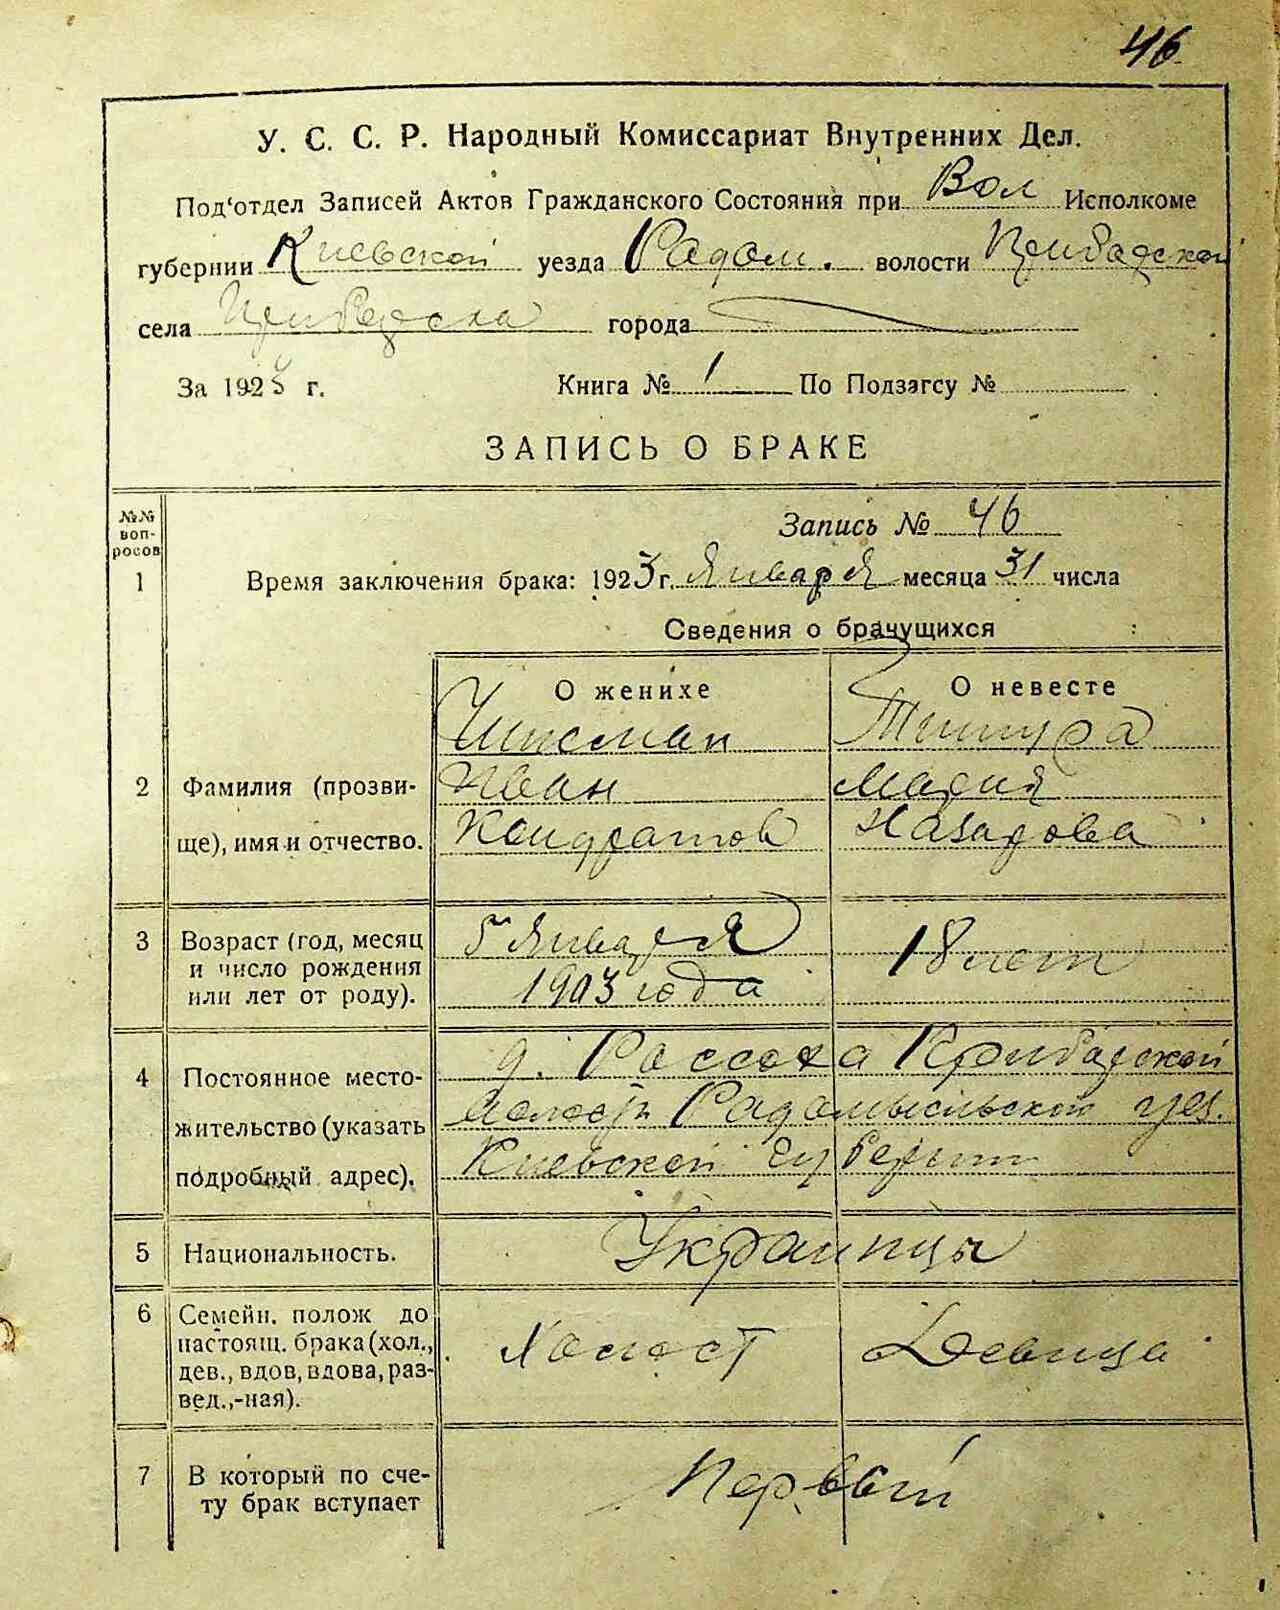 46
У. С. С. Р. Народный Комиссариат Внутренних Дел.
Под'отдел Записей Актов Гражданского Состояния при Вол Исполкоме
губернии Киевской уезда Радом. волости
села города
За 192 г. Книга № 1 По Подзагсу №
ЗАПИСЬ О БРАКЕ
№№ воп-росов
Запись № 46
1 Время заключения брака: 1923 г. Января месяца 31 числа
Сведения о брачущихся
О женихе О невесте
Шисман
2 Фамилия (прозви- Иван Мария
ще), имя и отчество. Кондратов Назарова
3 Возраст (год, месяц 5 Января 18 лет
и число рождения 1903 года
или лет от роду).
4 Постоянное место- д. Рассоха Прибарской
жительство (указать Радомысльской уез.
подробный адрес). Киевской губернии
5 Национальность. Украинцы
6 Семейн. полож до
настоящ. брака (хол., Холост Девица
дев., вдов, вдова, раз-
вед.,-ная).
7 В который по сче- Первый
ту брак вступает